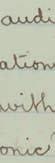 audi
ation
with
onic?